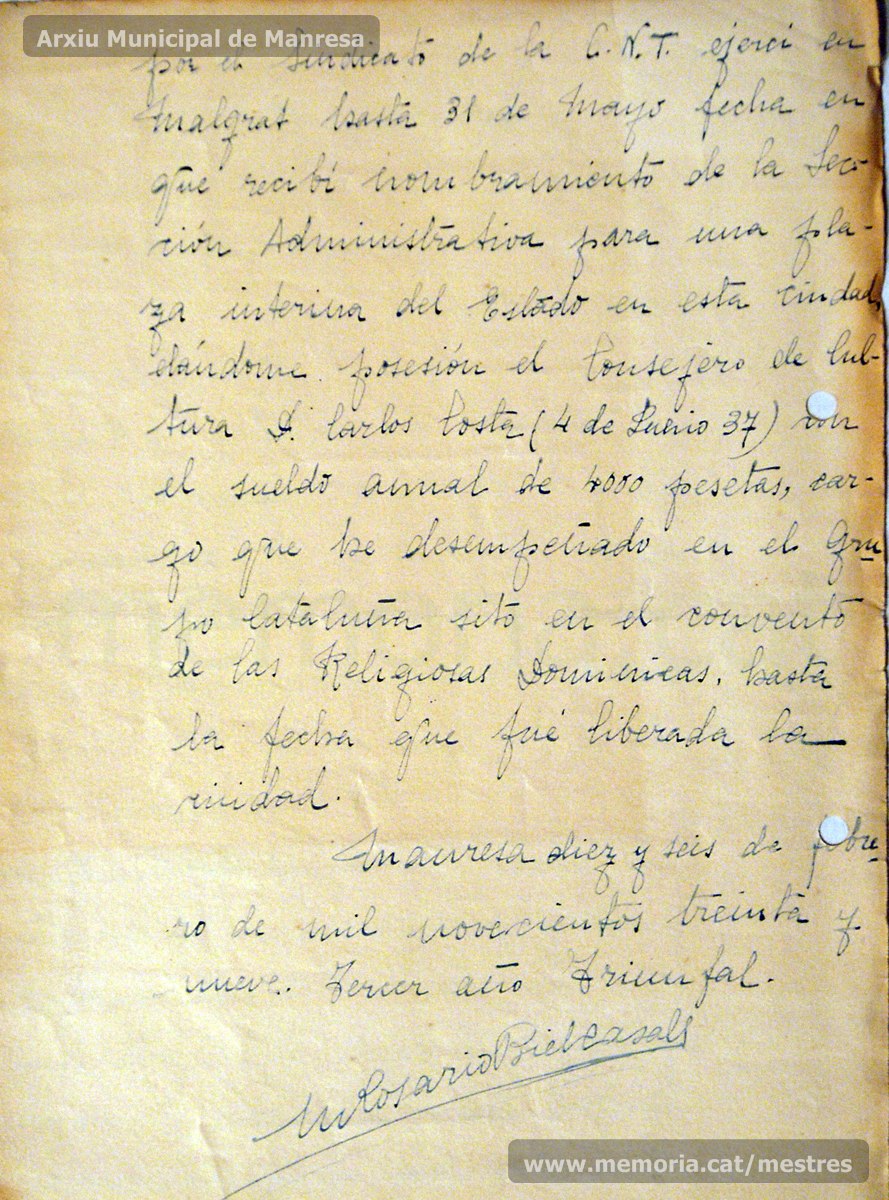 Arxiu Municipal de Manresa
por el Sindicato de la C.N.T. ejerci en
Malgrat hasta 31 de Mayo fecha en
que recibí nombramiento de la Sec-
ción Administrativa para una pla-
za interina del Estado en esta ciudad,
dándome posesión el Consejero de Cul-
tura D. Carlos Costa (4 de Junio 37) con
el sueldo anual de 4000 pesetas, car-
go que he desempeñado en el Gru-
po Cataluña sito en el convento
de las Religiosas Dominicas, hasta
la fecha que fué liberada la
ciudad.
Manresa diez y seis de febre-
ro de mil novecientos treinta y
nueve. Tercer año Triunfal.
M Rosario Biel Casals
www.memoria.cat/mestres